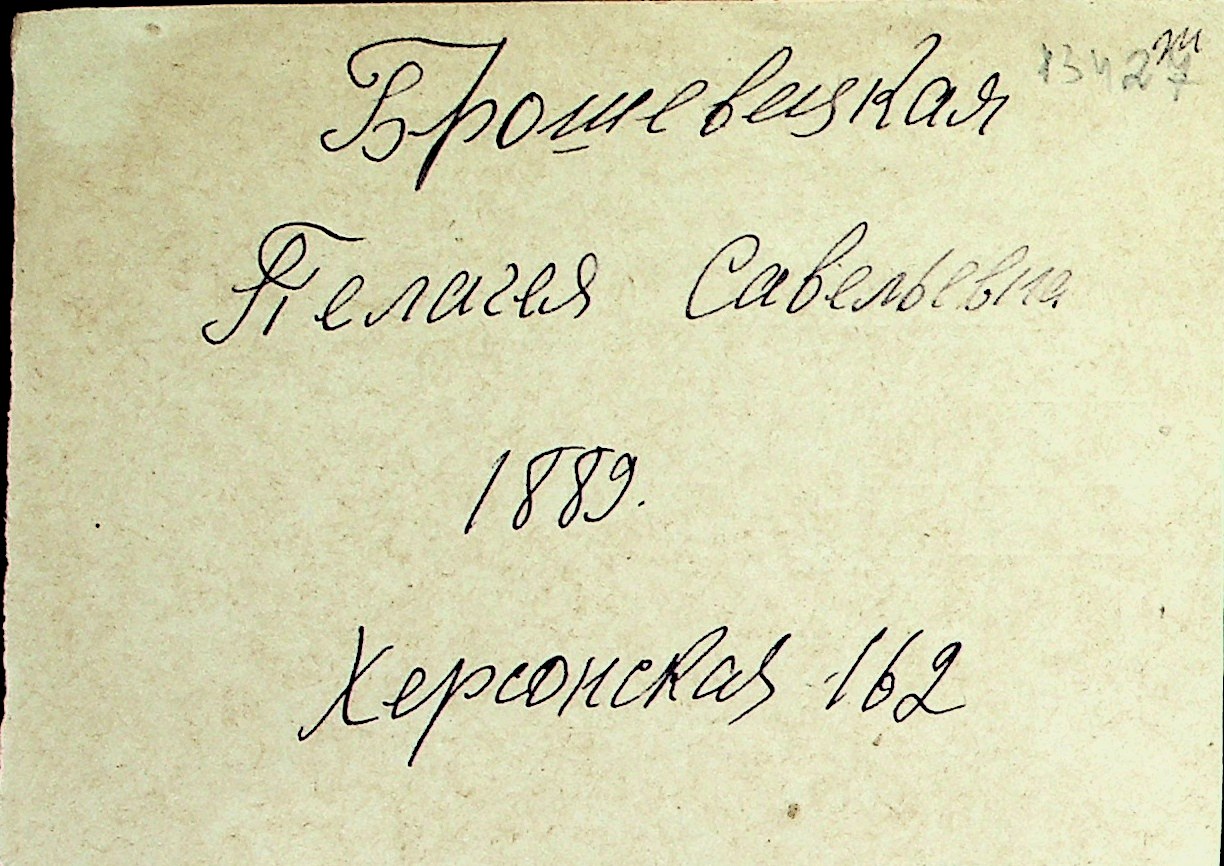 Брошевицкая
Пелагея Савельевна
1889.
Херсонская 162